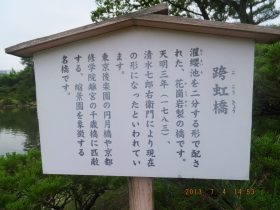 跨虹橋
ここうきょう
濯纓池を二分する形で配さ
れた、花崗岩製の橋です。
天明三年(一七八三)
清水七郎右衛門により現在
の形になったといわれてい
ます。
東京後楽園の円月橋や京都
修学院離宮の千歳橋に匹敵
する、縮景園を象徴する
名橋です。
2013 7 4 14:53